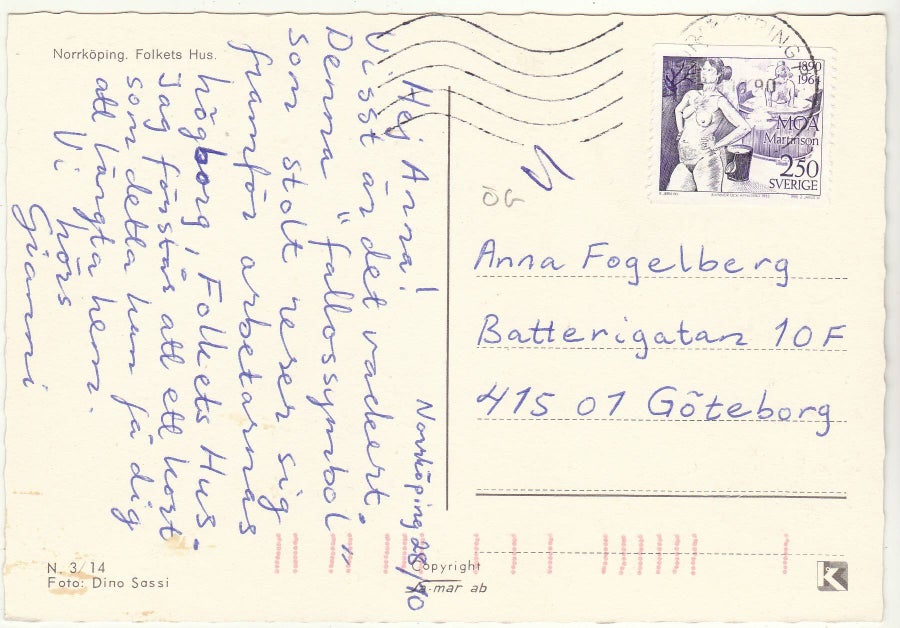 Norrköping. Folkets Hus.
Norrköping 28/10
Hej Anna!
Visst är det vackert.
Denna "fallossymbol"
som stolt reser sig
framför arbetarnas
högborg, Folkets Hus.
Jag förstås att ett kort
som detta kan få dig
att längta hem.
Vi hörs
Gianni
N. 3/14
Foto: Dino Sassi
Copyright
la-mar ab
ÖG
1890
196
MOA
Martinson
250
SVERIGE
Anna Fogelberg
Batterigatan 10F
415 01 Göteborg
K